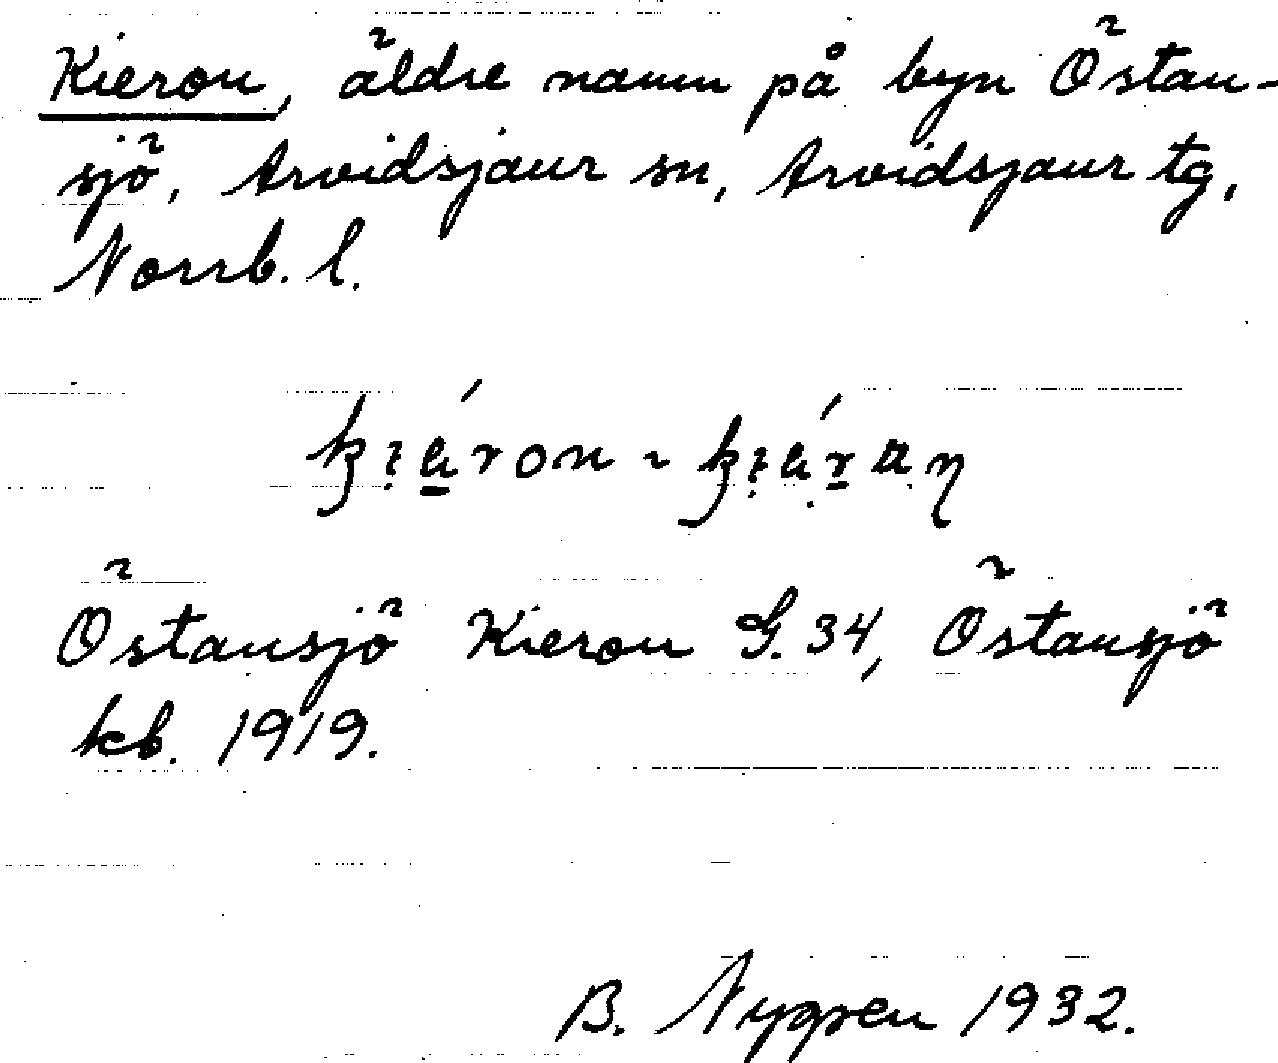 Kieron, äldre namn på byn Östan-
sjö, Arvidsjaur sn, Arvidsjaur tg,
Norrb. l.
Östansjö Kieron G. 34, Östansjö
kb. 1919.
B. Nygren 1932.